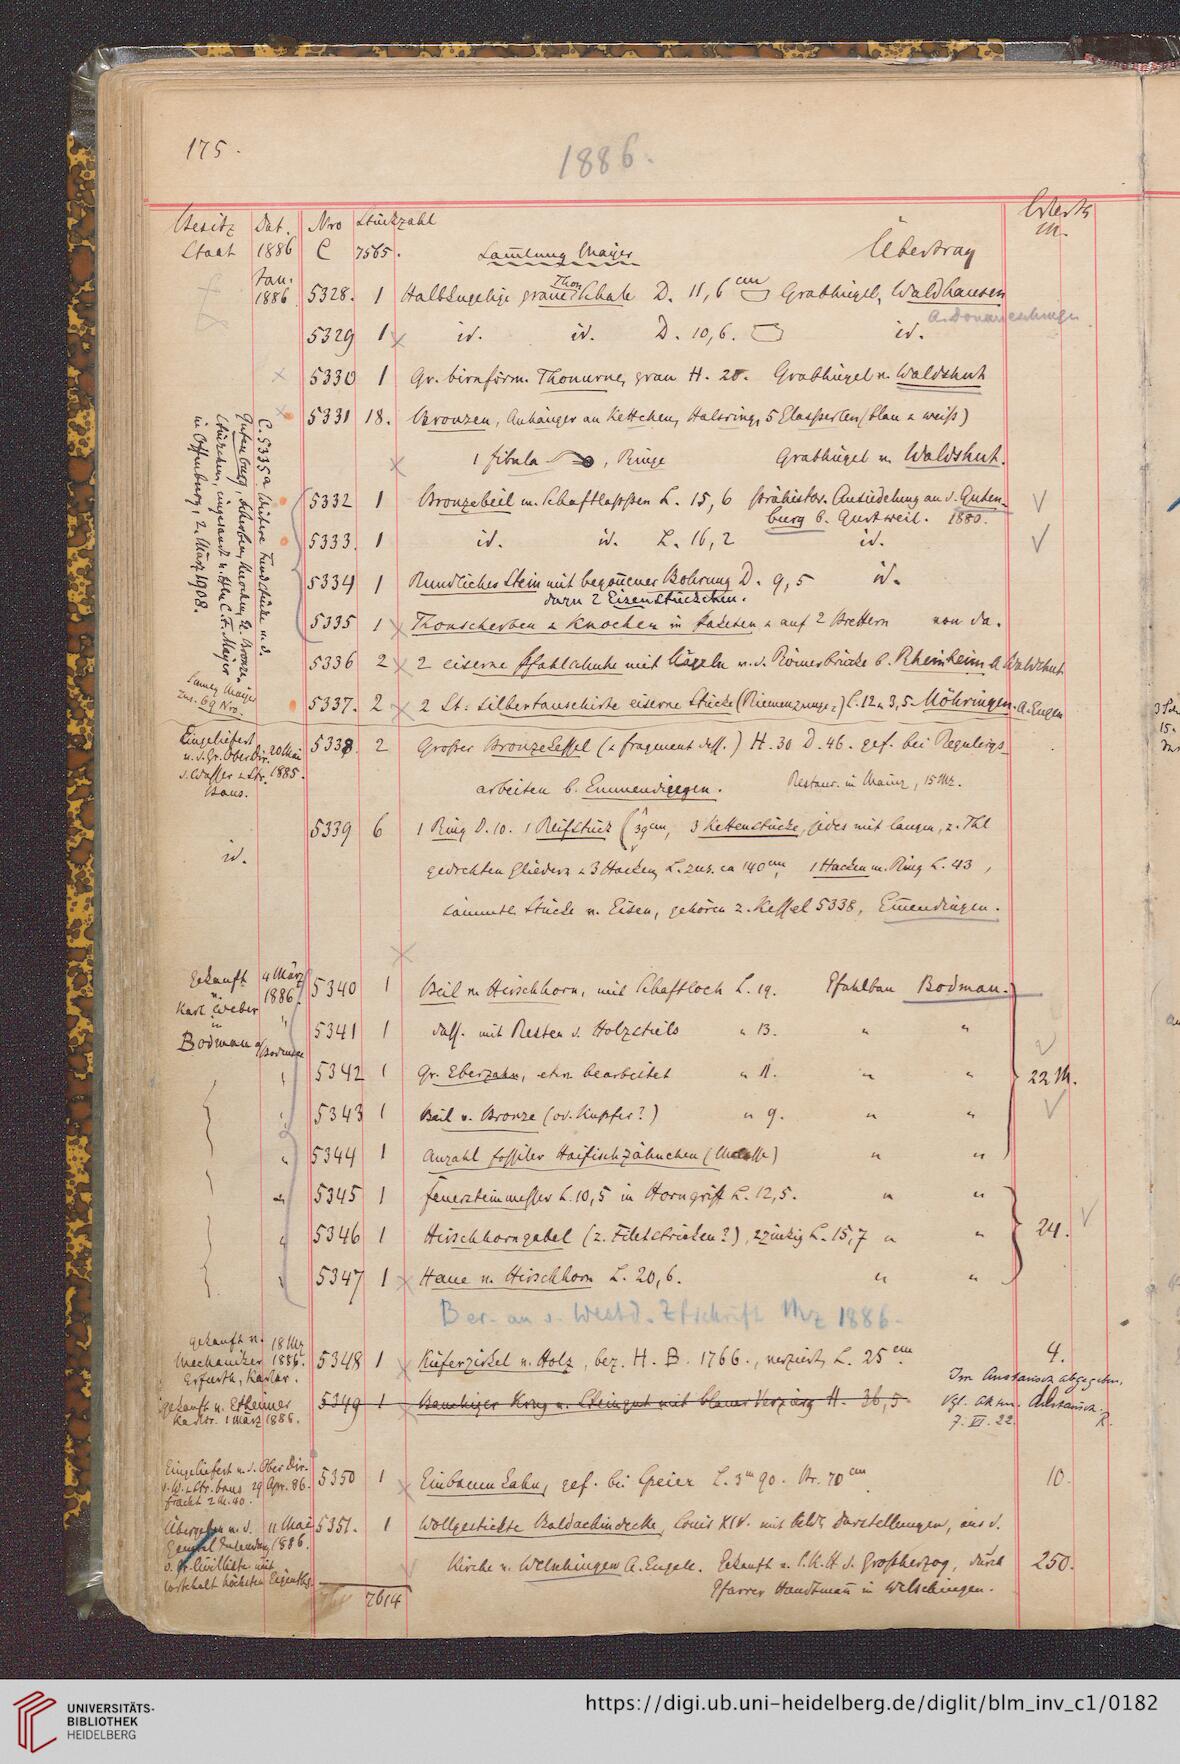 175.
1886.
Besitz Dat. Nro Stückzahl Werth
Staat 1886 C 7565. Sam̅lung Mayer Übertrag M.
Jan. 1886 5328. 1 Halbkugelige graue Thon Schale D. 11,6 cm Grabhügel, Waldhausen
A. Donaueschingen
5329 1 id. id. D. 10,6. id.
5330 1 Gr. birnförm. Thonurne, grau H. 20. Grabhügel v. Waldshut
5331 18. Bronzen, Anhänger an Kettchen, Halsring, 5 Glasperlen (blau u. weiß)
1 fibula , Ringe Grabhügel v. Waldshut.
5332 1 Bronzebeil m. Schaftlappen L. 15,6 prähistor. Ansiedelung an d. Guten-
burg b. Gurtweil. 1880.
5333. 1 id. id. L. 16,2 id.
5334 1 Rundlicher Stein mit begon̅ener Bohrung D. 9,5 id.
dazu 2 Eisenstückchen.
5335 1 Thonscherben u. Knochen in Paketen u. auf 2 Brettern von da.
C. 5335a Weitere Fundstücke v. d.
Gutenburg, Scherben, Knochen, 2 Bronze-
stückchen, eingesandt v. Hln C. F. Mayer
in Offenburg, 2. März 1908.
5336 2 2 eiserne Pfahlschuhe mit Nägeln v. d. Römerbrücke b. Rheinheim A. Waldshut.
Saml. Mayer
zus. 69 Nro.
5337. 2 2 St. silbertauschirte eiserne Stücke (Riemenzunge?) L. 12 u. 3,5. Möhringen. A. Engen
Eingeliefert
v. d. Gr. Ober Dir. 20 Mai
d. Wasser u. Str. 1885.
baus.
5338 2 Großer Bronzekessel (u. fragment dess.) H. 30 D. 46. gef. bei Regulirgs-
arbeiten b. Emmendingen. Restaur. in Mainz, 15 Mk.
id. 5339 6 1 Ring D. 10. 1 Reifstück (39 cm, 3 Kettenstücke, jedes mit langen, z. Thl
gedrehten Gliedern u. 3 Hacken, L. zus. ca 140 cm, 1 Hacken m. Ring L. 43,
sämmtl. Stücke v. Eisen, gehören z. Kessel 5338, Em̅endingen.
Gekauft 4 März
v. 1886.
Karl Weber
in
Bodman a/Bodensee
5340 1 Beil v. Hirschhorn, mit Schaftloch L. 19. Pfahlbau Bodman.
5341 1 dass. mit Resten d. Holzstiels " 13. " "
5342 1 Gr. Eberzahn, etw. bearbeitet " 11. " " 22 M.
5343 1 Beil v. Bronze (od. Kupfer?) " 9. " "
5344 1 Anzahl fossiler Haifischzähnchen (Molasse) " "
5345 1 Feuersteinmesser L. 10,5 in Horngriff L. 12,5. " "
5346 1 Hirschhorngabel (z. Filetstricken?), 2zinkig L. 15,7 " " 24.
5347 1 Haue v. Hirschhorn L. 20,6. " "
Ber. an d. Westd. Ztschrift Mrz 1886.
gekauft v. 18 Mz
Mechaniker 1886.
Erfurth, Karlsr.
5348 1 Küferzirkel v. Holz, bez. H. B. 1766., verziert, L. 25 cm. 4.
Im Austausch abgegeben.
gekauft v. Etheimer
Karlsr. 1 März 1886.
5349 1 Bauchiger Krug v. Steingut mit blauer Verzierg H. 36,5
Vgl. Akten. Austausch.
7. VI. 22. R.
Eingeliefert v. d. Ober Dir.
d. W. u. Str. baus 29 Apr. 86.
Fracht 2 M. 40.
5350 1 Einbaumkahn, gef. bei Speier L. 3 m 90. Br. 70 cm. 10.
Übergeben v. d. 11 Mai
General Intendanz 1886.
d. Gr. Civilliste mit
Vorbehalt höchsten Eigenths.
5351. 1 Wollgestickte Baldachindecke, Louis XIV. mit bildl. Darstellungen, aus d.
Kirche v. Welschingen A. Engen. Gekauft v. S. K. H. d. Großherzog, durch 250.
Pfarrer Handtman̅ in Welschingen.
7614
UNIVERSITÄTS-
BIBLIOTHEK
HEIDELBERG
https://digi.ub.uni-heidelberg.de/diglit/blm_inv_c1/0182